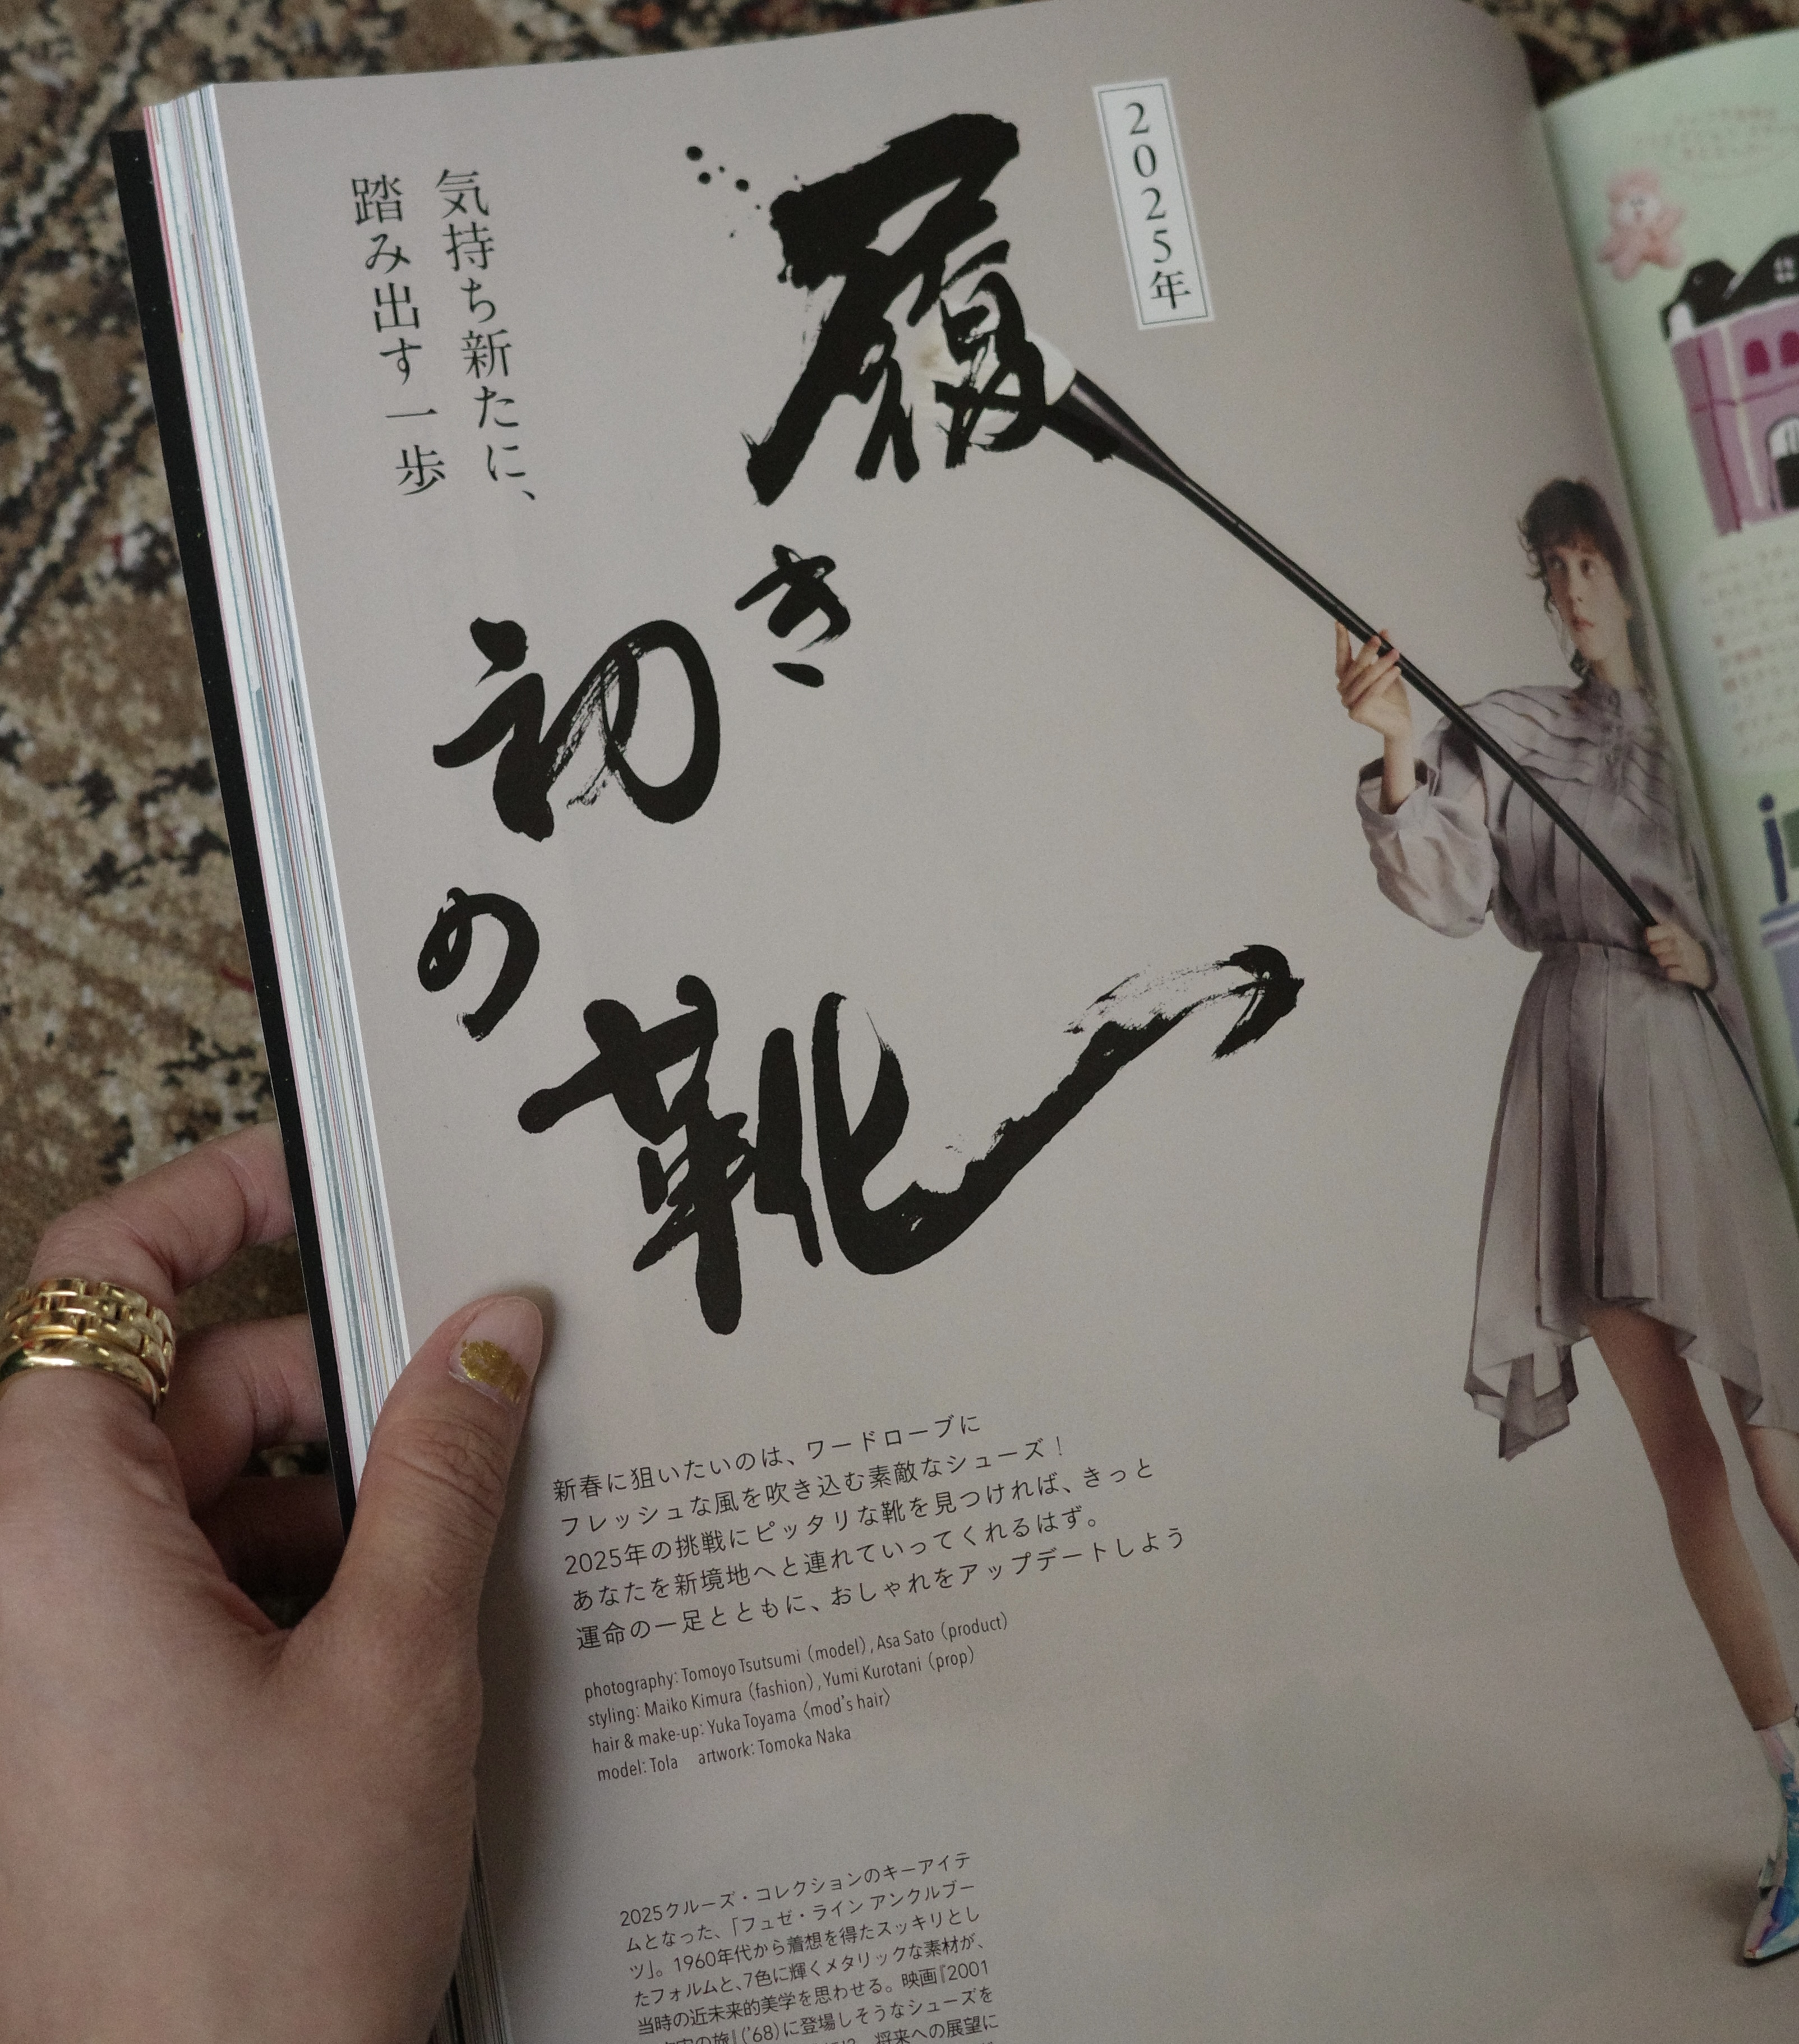 2025年
履き
初めの
靴
気持ち新たに、
踏み出す一歩
新春に狙いたいのは、ワードローブに
フレッシュな風を吹き込む素敵なシューズ！
2025年の挑戦にピッタリな靴を見つければ、きっと
あなたを新境地へと連れていってくれるはず。
運命の一足とともに、おしゃれをアップデートしよう
photography: Tomoyo Tsutsumi (model), Asa Sato (product)
styling: Maiko Kimura (fashion), Yumi Kurotani (prop)
hair & make-up: Yuka Toyama〈mod's hair〉
model: Tola　artwork: Tomoka Naka
2025クルーズ・コレクションのキーアイテ
ムとなった、「フュゼ・ライン アンクルブー
ツ」。1960年代から着想を得たスッキリとし
たフォルムと、7色に輝くメタリックな素材が、
当時の近未来的美学を思わせる。映画『2001
の旅』('68)に登場しそうなシューズを
将来への展望に